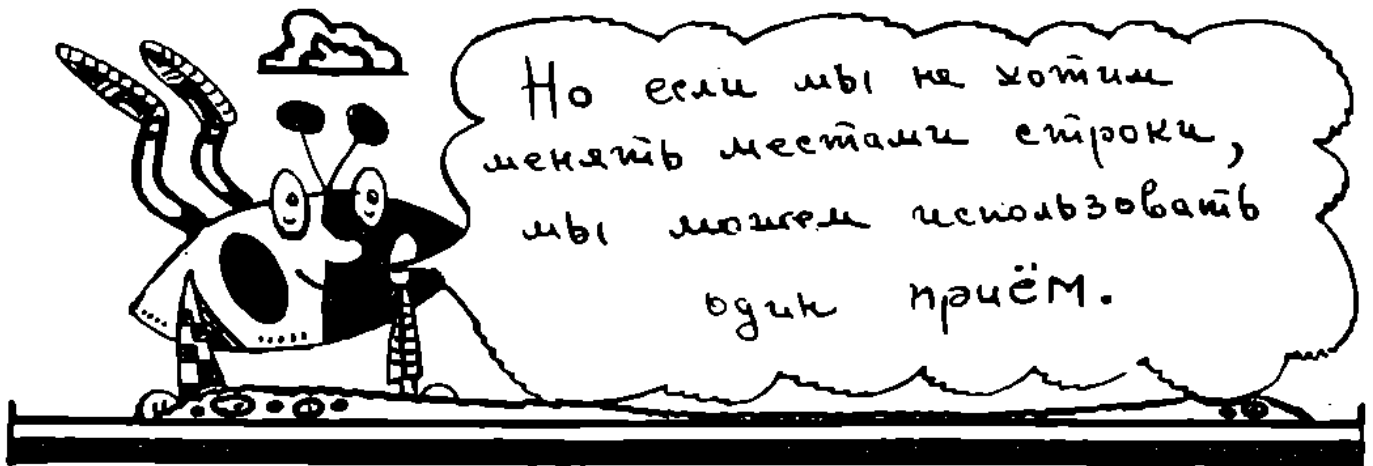 Но если мы не хотим
менять местами строки,
мы можем использовать
один приём.